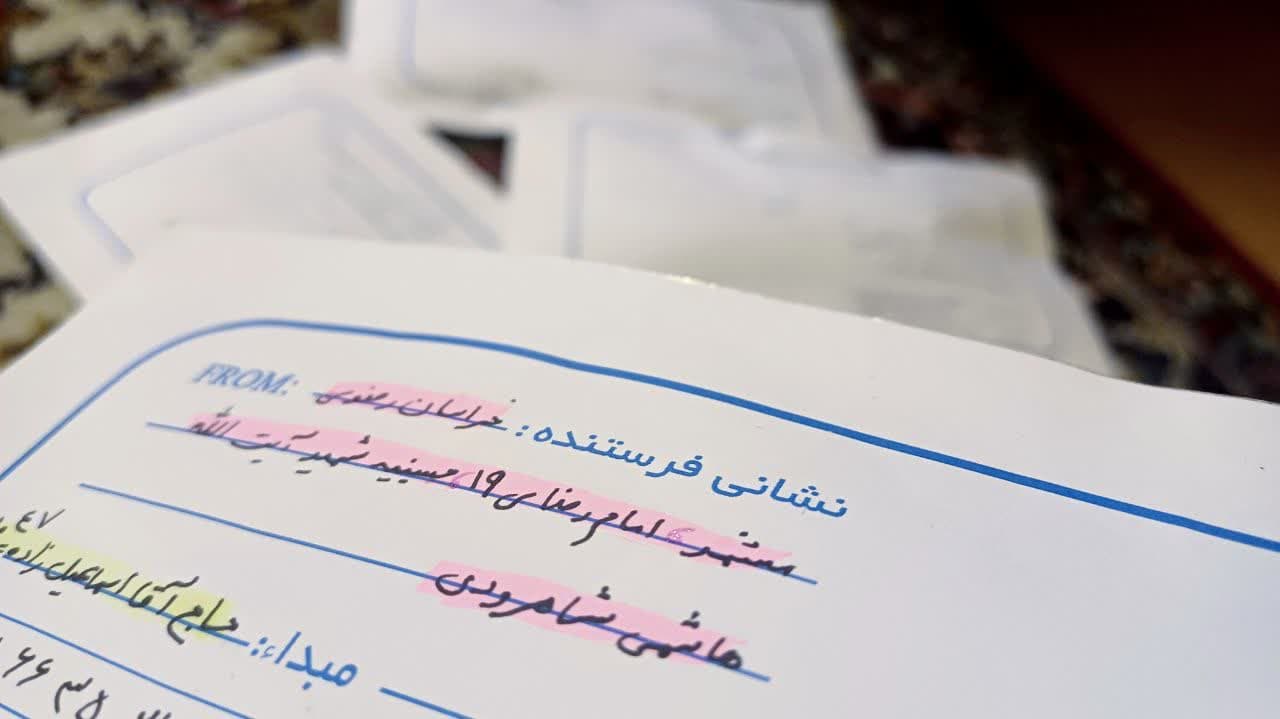 نشانی فرستنده: خراسان رضوی FROM:
مشهد، امام رضای ۱۹، حسینیه شهید آیت الله
هاشمی شاهرودی
مبداء: حاج آقا اسماعیل زاده
۴۷
۶۶ ۳۵